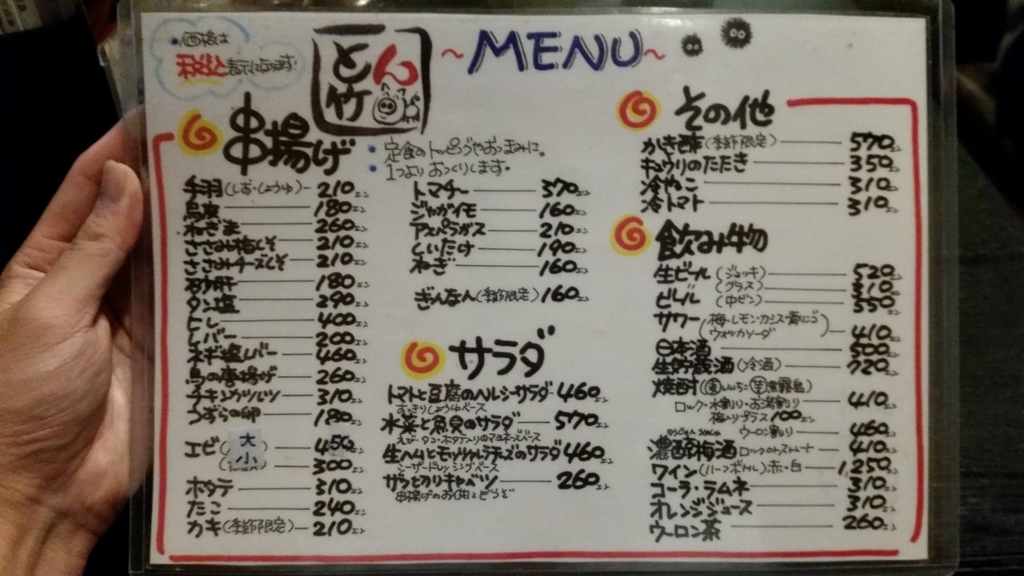 ・価格は
税込と表示になります。
とん竹
~MENU~
串揚げ
・定食のトッピングやおつまみに。
・1つよりおつくりします。
手羽(しお・しょうゆ) 210
鳥皮 180
ねぎま 260
ささみ梅しそ 210
ささみチーズしそ 210
砂肝 180
タン塩 290
ヒレ 400
レバー 200
ネギ塩レバー 460
鳥の唐揚げ 260
チキンナンコツ 310
うずらの卵 180
エビ 大 450
小 300
ホタテ 310
たこ 240
カキ(季節限定) 210
トマチー 370
ジャガイモ 160
アスパラガス 210
しいたけ 190
ねぎ 160
ぎんなん(季節限定) 160
サラダ
トマトと豆腐のヘルシーサラダ 460
すっきりしょうゆベース
水菜と魚貝のサラダ 570
エビ・タコ・ホタテ入りのマヨネーズベース
生ハムとモッツァレラチーズのサラダ 460
シーザードレッシングベース
ざっとフリキャベツ 260
串揚げのお供にどうぞ
その他
かき酢(季節限定) 570
キュウリのたたき 350
冷やっこ 310
冷トマト 310
飲み物
生ビール(ジョッキ) 520
(グラス) 310
ビール(中ビン) 550
サワー(梅・レモン・カシス・青りんご
ウォッカソーダ) 410
日本酒 500
生貯蔵酒(冷酒) 720
焼酎(麦いいちこ 芋黒霧島) 410
ロック・水割り・お湯割り
梅入りプラス100
ウーロン割り 460
濃醇梅酒 ロック or ストレート 410
ワイン(ハーフボトル)赤・白 1,250
コーラ・ラムネ 310
オレンジジュース 310
ウーロン茶 260